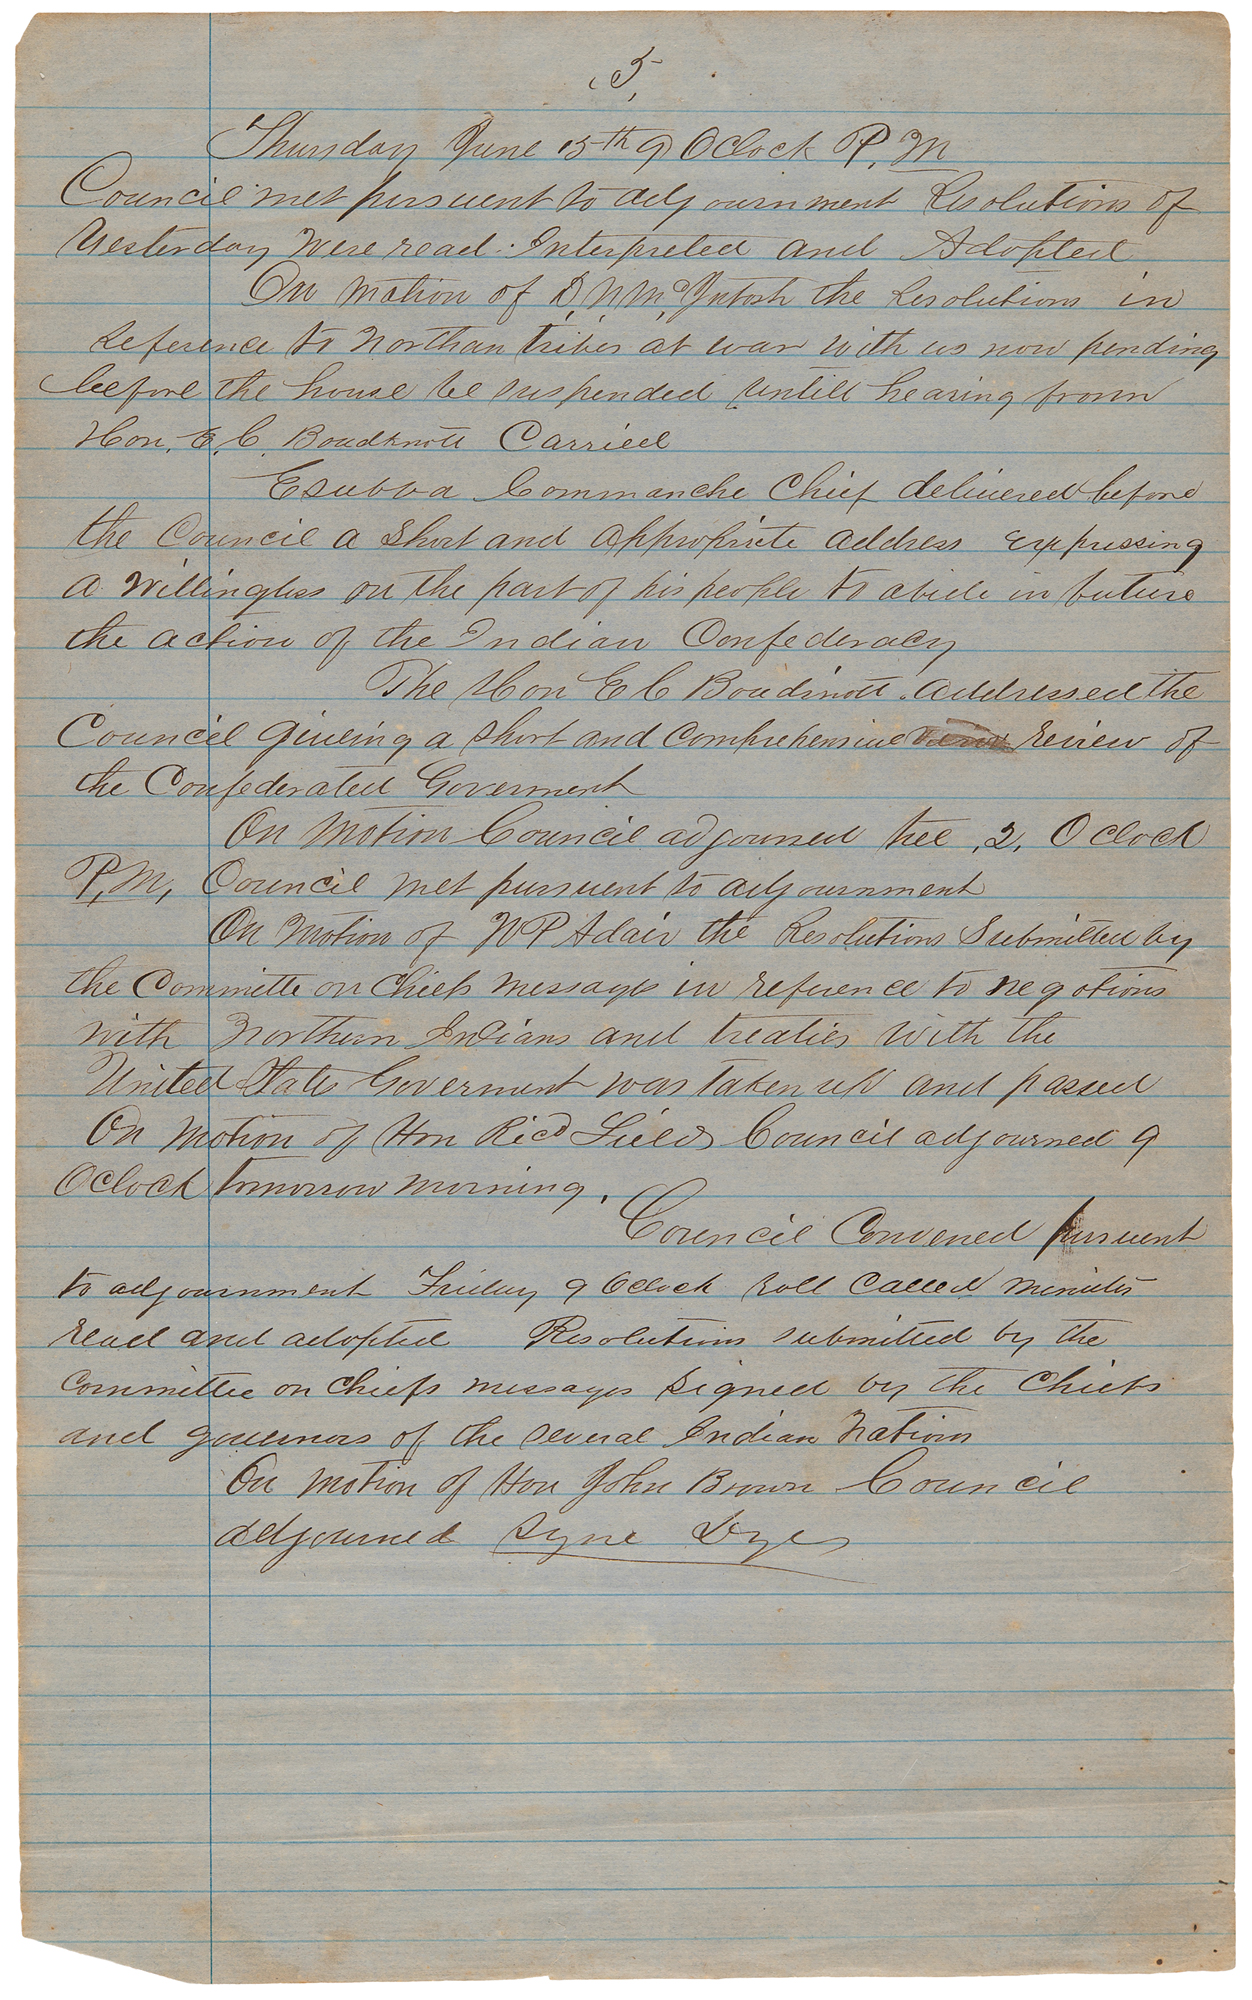 5
Thursday June 15th 9 Oclock P.M
Council met pursuent to adjournment Resolutions of
Yesterday were read Interpreted and Adopted
On motion of D. N. McIntosh the Resolutions in
Reference to Northan tribes at war with us now pending
before the house be suspended untill hearing from
Hon. E. C. Boudknott Carried
Esubba Commanche Chief delivered before
the Council a Short and Appropriate address expressing
a Willingless on the part of his people to abide in future
the action of the Indian Confederacy
The Hon E C Boudinott Addressed the
Council giveing a short and comprehensive review of
the Confederated Goverment
On Motion Council adjourned till 2, Oclock
P.M, Council met pursuent to adjournment
On Motion of W P Adair the Resolutions Submitted by
the Committe on Chiefs messages in reference to negotions
with Northern Indians and treaties with the
United States Goverment was taken up and passed
On Motion of Hon Ricd Fields Council adjourned 9
Oclock tomorrow morning.
Council Convened pursuent
to adjournment Friday 9 Oclock Roll Called Minutes
read and adopted Resolutions submitted by the
Committee on Chiefs messages Signed by the Chiefs
and governors of the several Indian Nations
On Motion of Hon John Brown Council
adjourned Syne Dyes